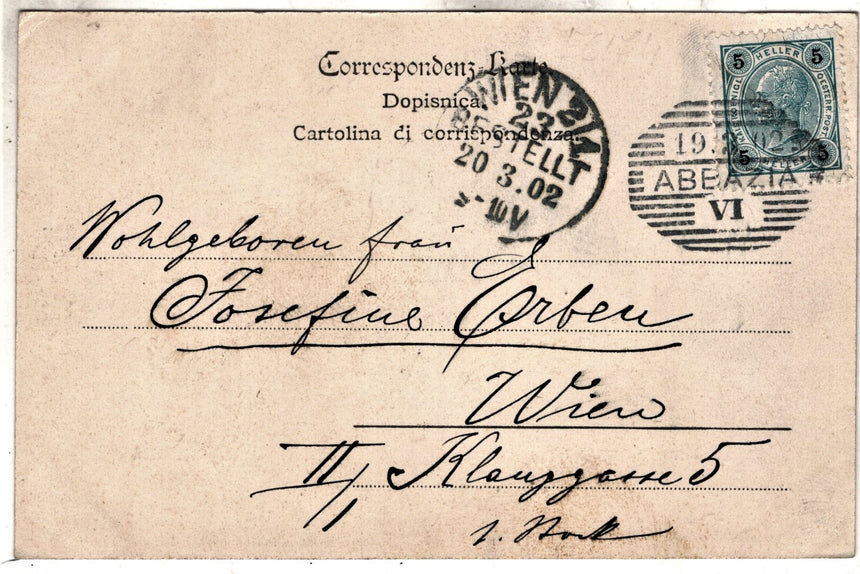 Correspondenz-Karte
Dopisnica.
Cartolina di corrispondenza.
WIEN 2/1
23
BESTELLT
20 3. 02
-10V
5 HELLER 5
OESTERR. POST
5 HELLER 5
19. 02
ABBAZIA *
VI
Wohlgeboren frau
Josefine Erben
Wien
II/1 Klanggasse 5
1. Stock